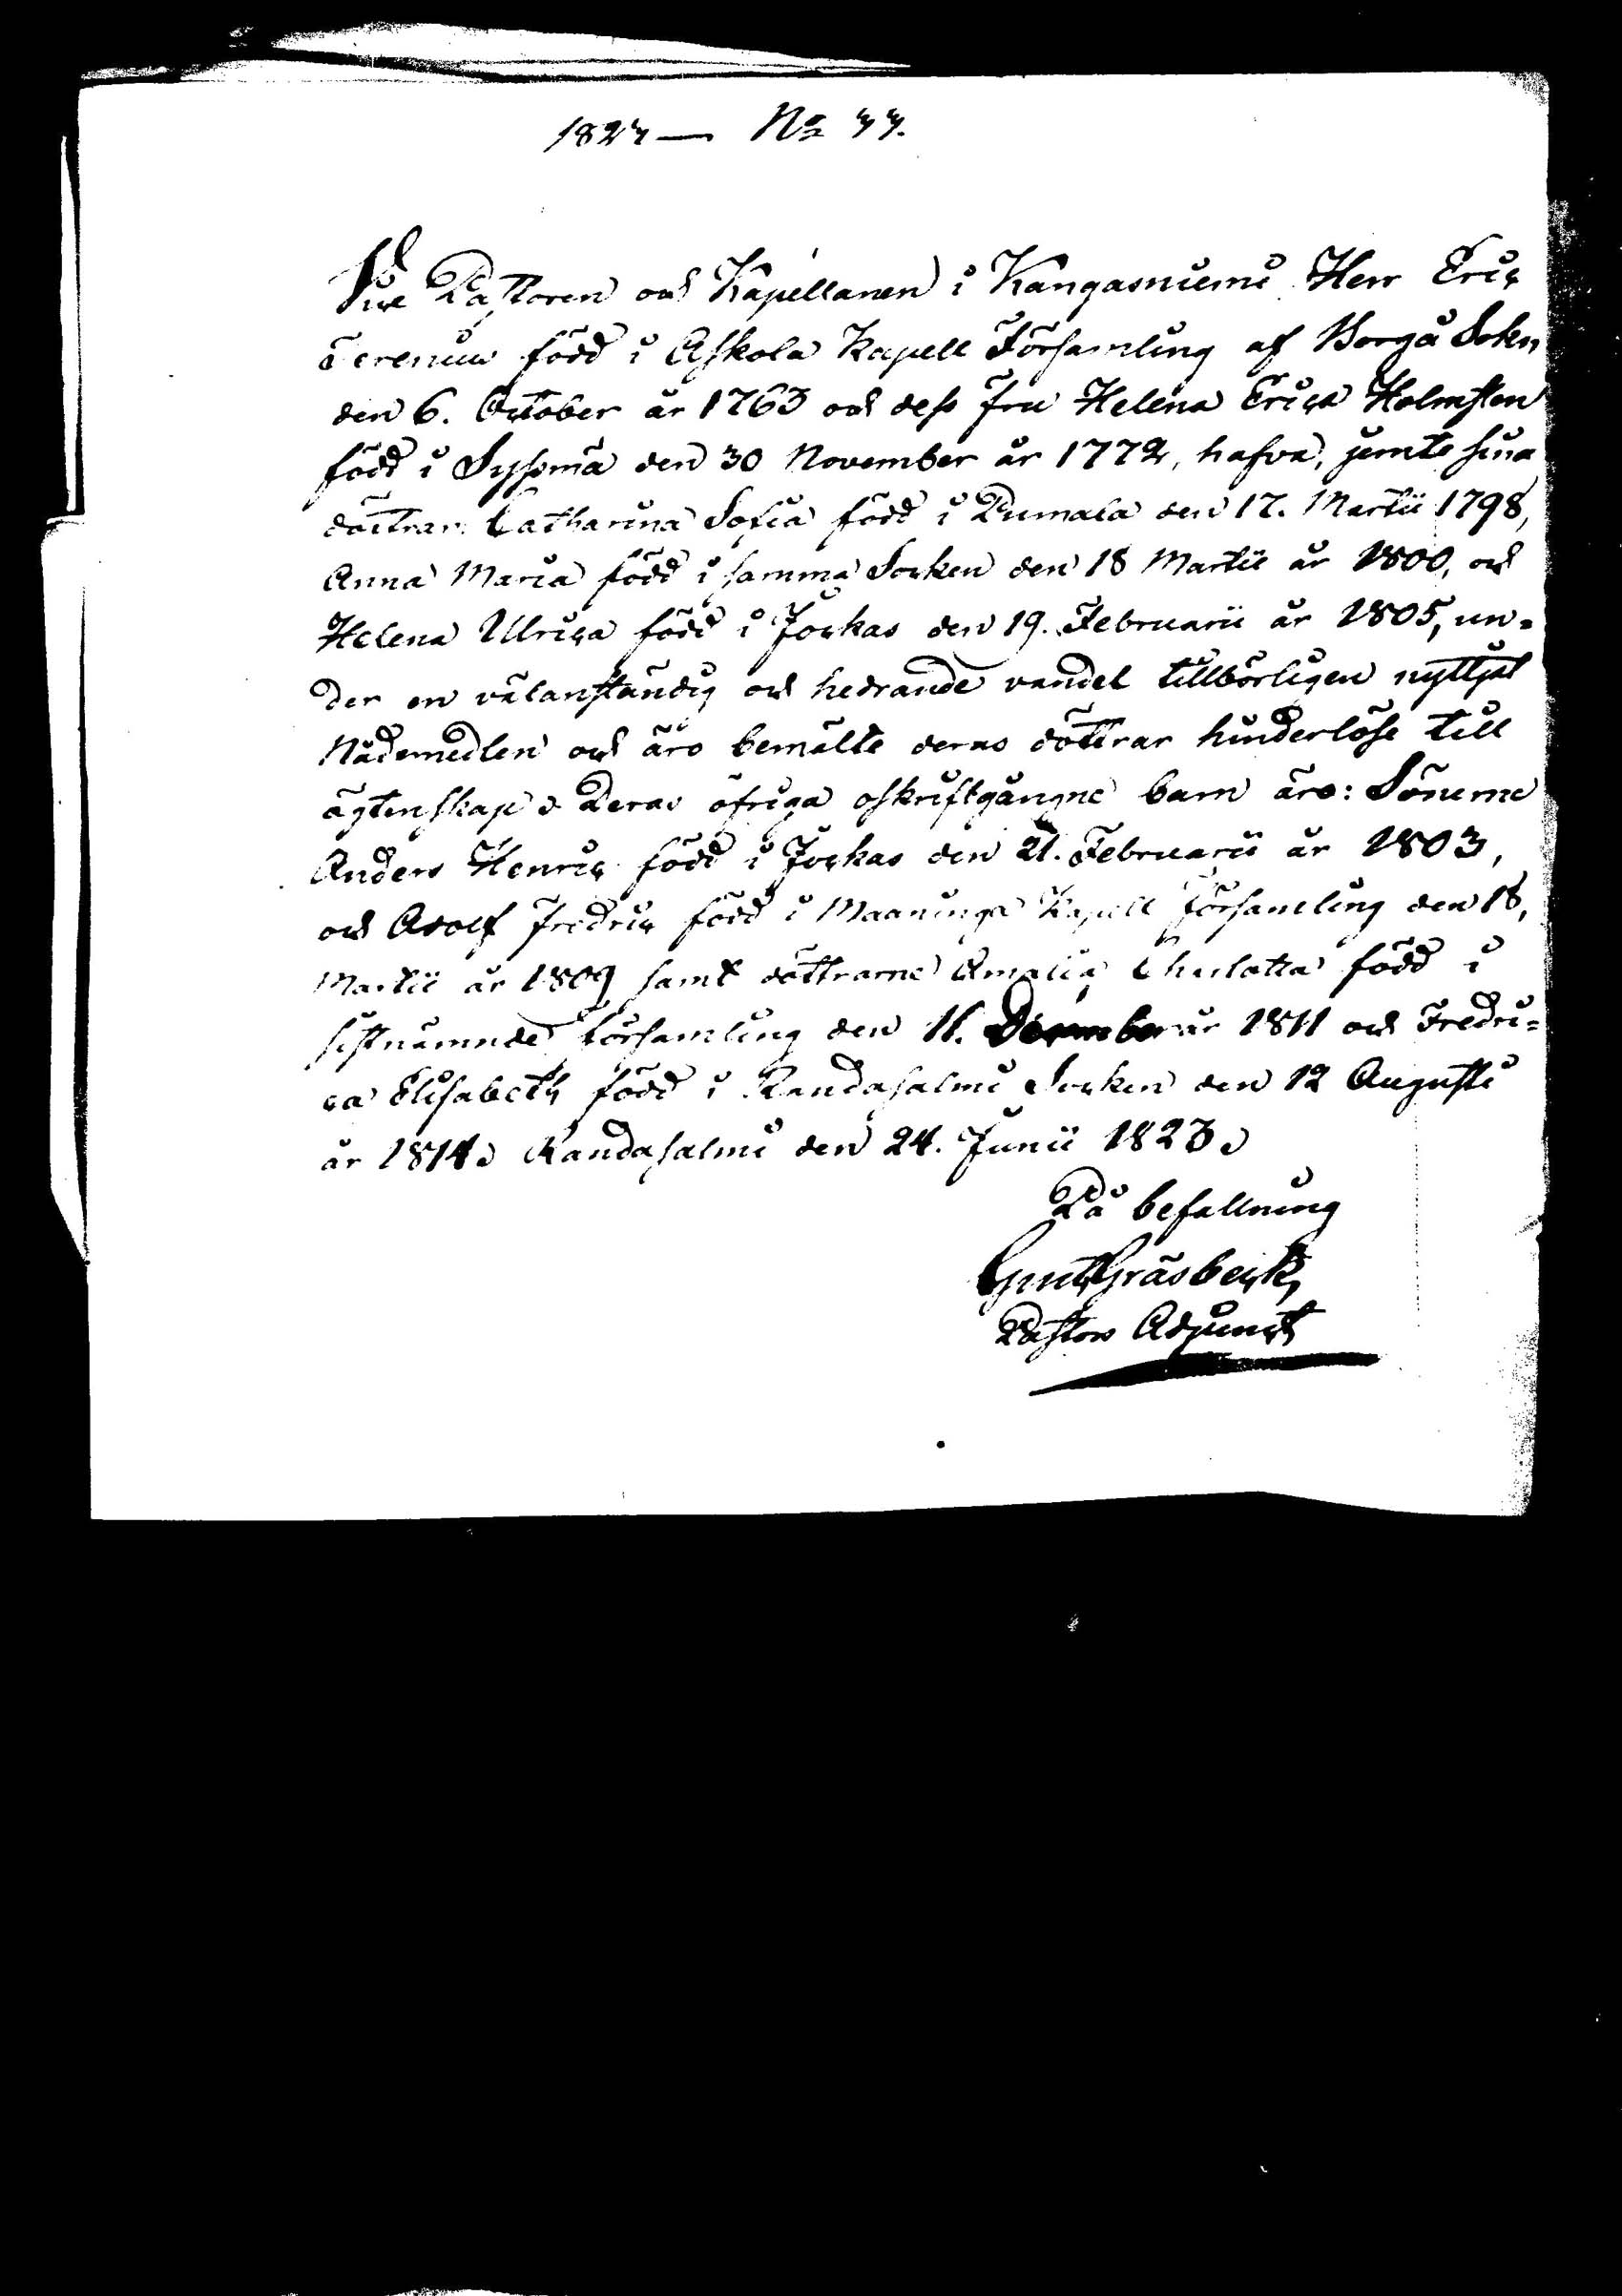 1823 — No 33.
Vice Pastoren och Kapellanen i Kangasniemi Herr Eric
Serenius född i Askola Kapell Församling af Borgå Sokn
den 6. October år 1763 och dess Fru Helena Erica Holmsten
född i Syssmä den 30 November år 1772, hafva, jemte sina
döttrar Catharina Sofia född i Pumala den 17. Martii 1798,
Anna Maria född i samma Socken den 18 Martii år 1800, och
Helena Ulrica född i Jockas den 19. Februarii år 1805, un=
der en välanständig och hedrande vandel tillbörligen nyttjat
Nådemedlen och äro bemälte deras döttrar hinderlöse till
ägtenskap. Deras öfriga oskriftgångne barn äro: Sönerne
Anders Henric född i Jockas den 21. Februarii år 1803,
och Adolf Fredric född i Maaninga Kapell Församling den 18,
Martii år 1809 samt döttrarne Amalia Charlotta född i
sistnämnde församling den 11. December år 1811 och Fredri=
ca Elisabeth född i Randasalmi Socken den 12 Augusti
år 1814. Randasalmi den 24. Junii 1823.
På befallning
Gräsbeck
Pastors Adjunct